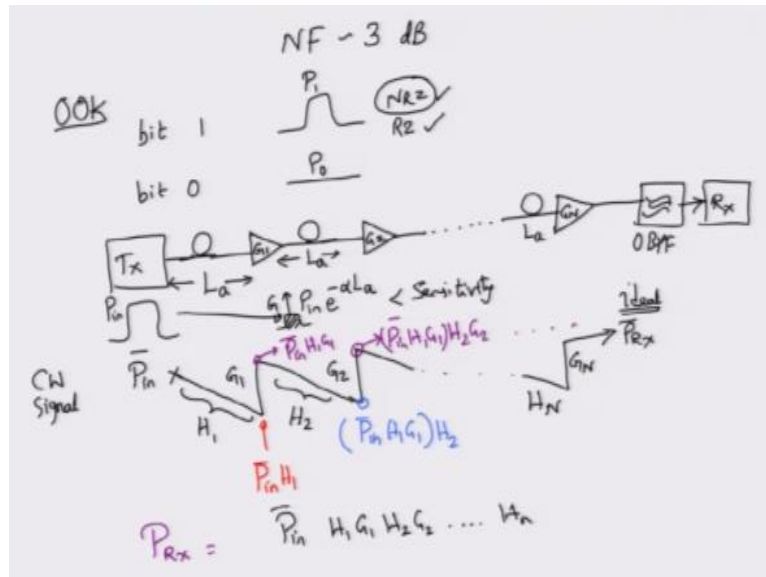 NF ~ 3 dB
OOK
bit 1
P₁
NRZ ✓
RZ ✓
bit 0
P₀
Tx
La
G₁
La
G₂
......
La
G_N
OBPF
Rx
P_in
G↑ P_in e^-αLa < Sensitivity
ideal
CW Signal
P̄_in
H₁
G₁
P̄_in H₁G₁
H₂
G₂
(P̄_in H₁G₁)H₂G₂
......
H_N
G_N
P̄_Rx
P̄_in H₁
(P̄_in H₁G₁)H₂
P_Rx = P̄_in H₁G₁H₂G₂ .... H_n